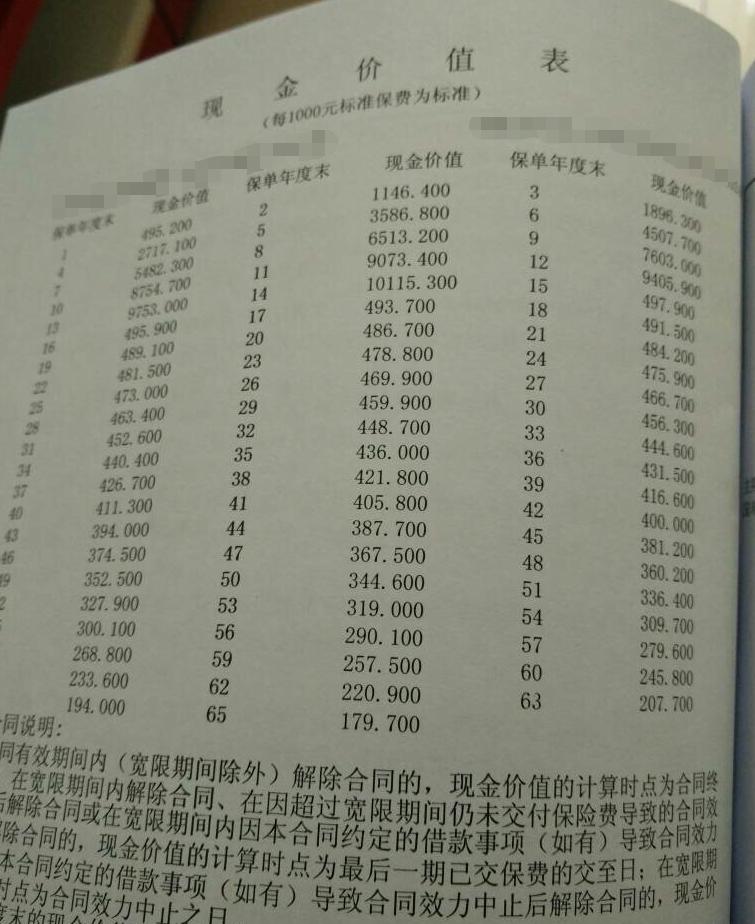 现金价值表
（每1000元标准保费为标准）
保单年度末 现金价值 保单年度末 现金价值 保单年度末 现金价值
1 495.200 2 1146.400 3 1896.300
4 2717.100 5 3586.800 6 4507.700
7 5482.300 8 6513.200 9 7603.000
10 8754.700 11 9073.400 12 9405.900
13 9753.000 14 10115.300 15 497.900
16 495.900 17 493.700 18 491.500
19 489.100 20 486.700 21 484.200
22 481.500 23 478.800 24 475.900
25 473.000 26 469.900 27 466.700
28 463.400 29 459.900 30 456.300
31 452.600 32 448.700 33 444.600
34 440.400 35 436.000 36 431.500
37 426.700 38 421.800 39 416.600
40 411.300 41 405.800 42 400.000
43 394.000 44 387.700 45 381.200
46 374.500 47 367.500 48 360.200
9 352.500 50 344.600 51 336.400
2 327.900 53 319.000 54 309.700
300.100 56 290.100 57 279.600
268.800 59 257.500 60 245.800
233.600 62 220.900 63 207.700
194.000 65 179.700
同说明：
同有效期间内（宽限期间除外）解除合同的，现金价值的计算时点为合同终
在宽限期间内解除合同、在因超过宽限期间仍未交付保险费导致的合同效
后解除合同或在宽限期间内因本合同约定的借款事项（如有）导致合同效力
除合同的，现金价值的计算时点为最后一期已交保费的交至日；在宽限期
本合同约定的借款事项（如有）导致合同效力中止后解除合同的，现金价
时点为合同效力中止之日